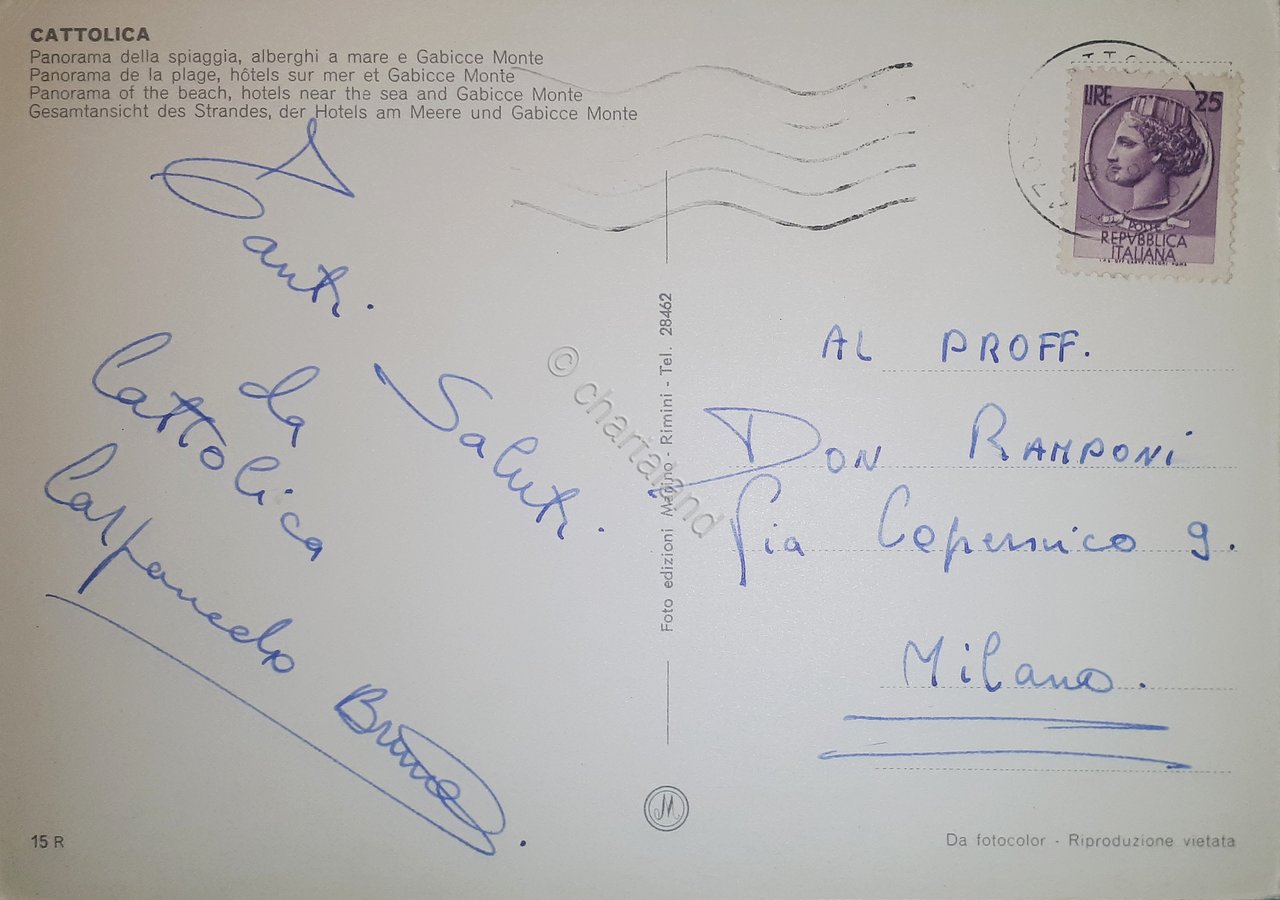 CATTOLICA
Panorama della spiaggia, alberghi a mare e Gabicce Monte
Panorama de la plage, hôtels sur mer et Gabicce Monte
Panorama of the beach, hotels near the sea and Gabicce Monte
Gesamtansicht des Strandes, der Hotels am Meere und Gabicce Monte
Tanti.
Saluti.
da
Cattolica
Carpanedo
Bruno.
15 R
Foto edizioni Marino - Rimini - Tel. 28462
M
© chartaland
LIRE 25
POSTE
REPVBBLICA
ITALIANA
AL PROFF.
DON RAMPONI
Via Copernico 9.
Milano.
Da fotocolor - Riproduzione vietata